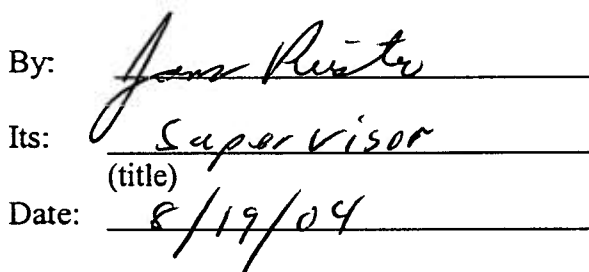 By:
Its: Supervisor
(title)
Date: 8/19/04